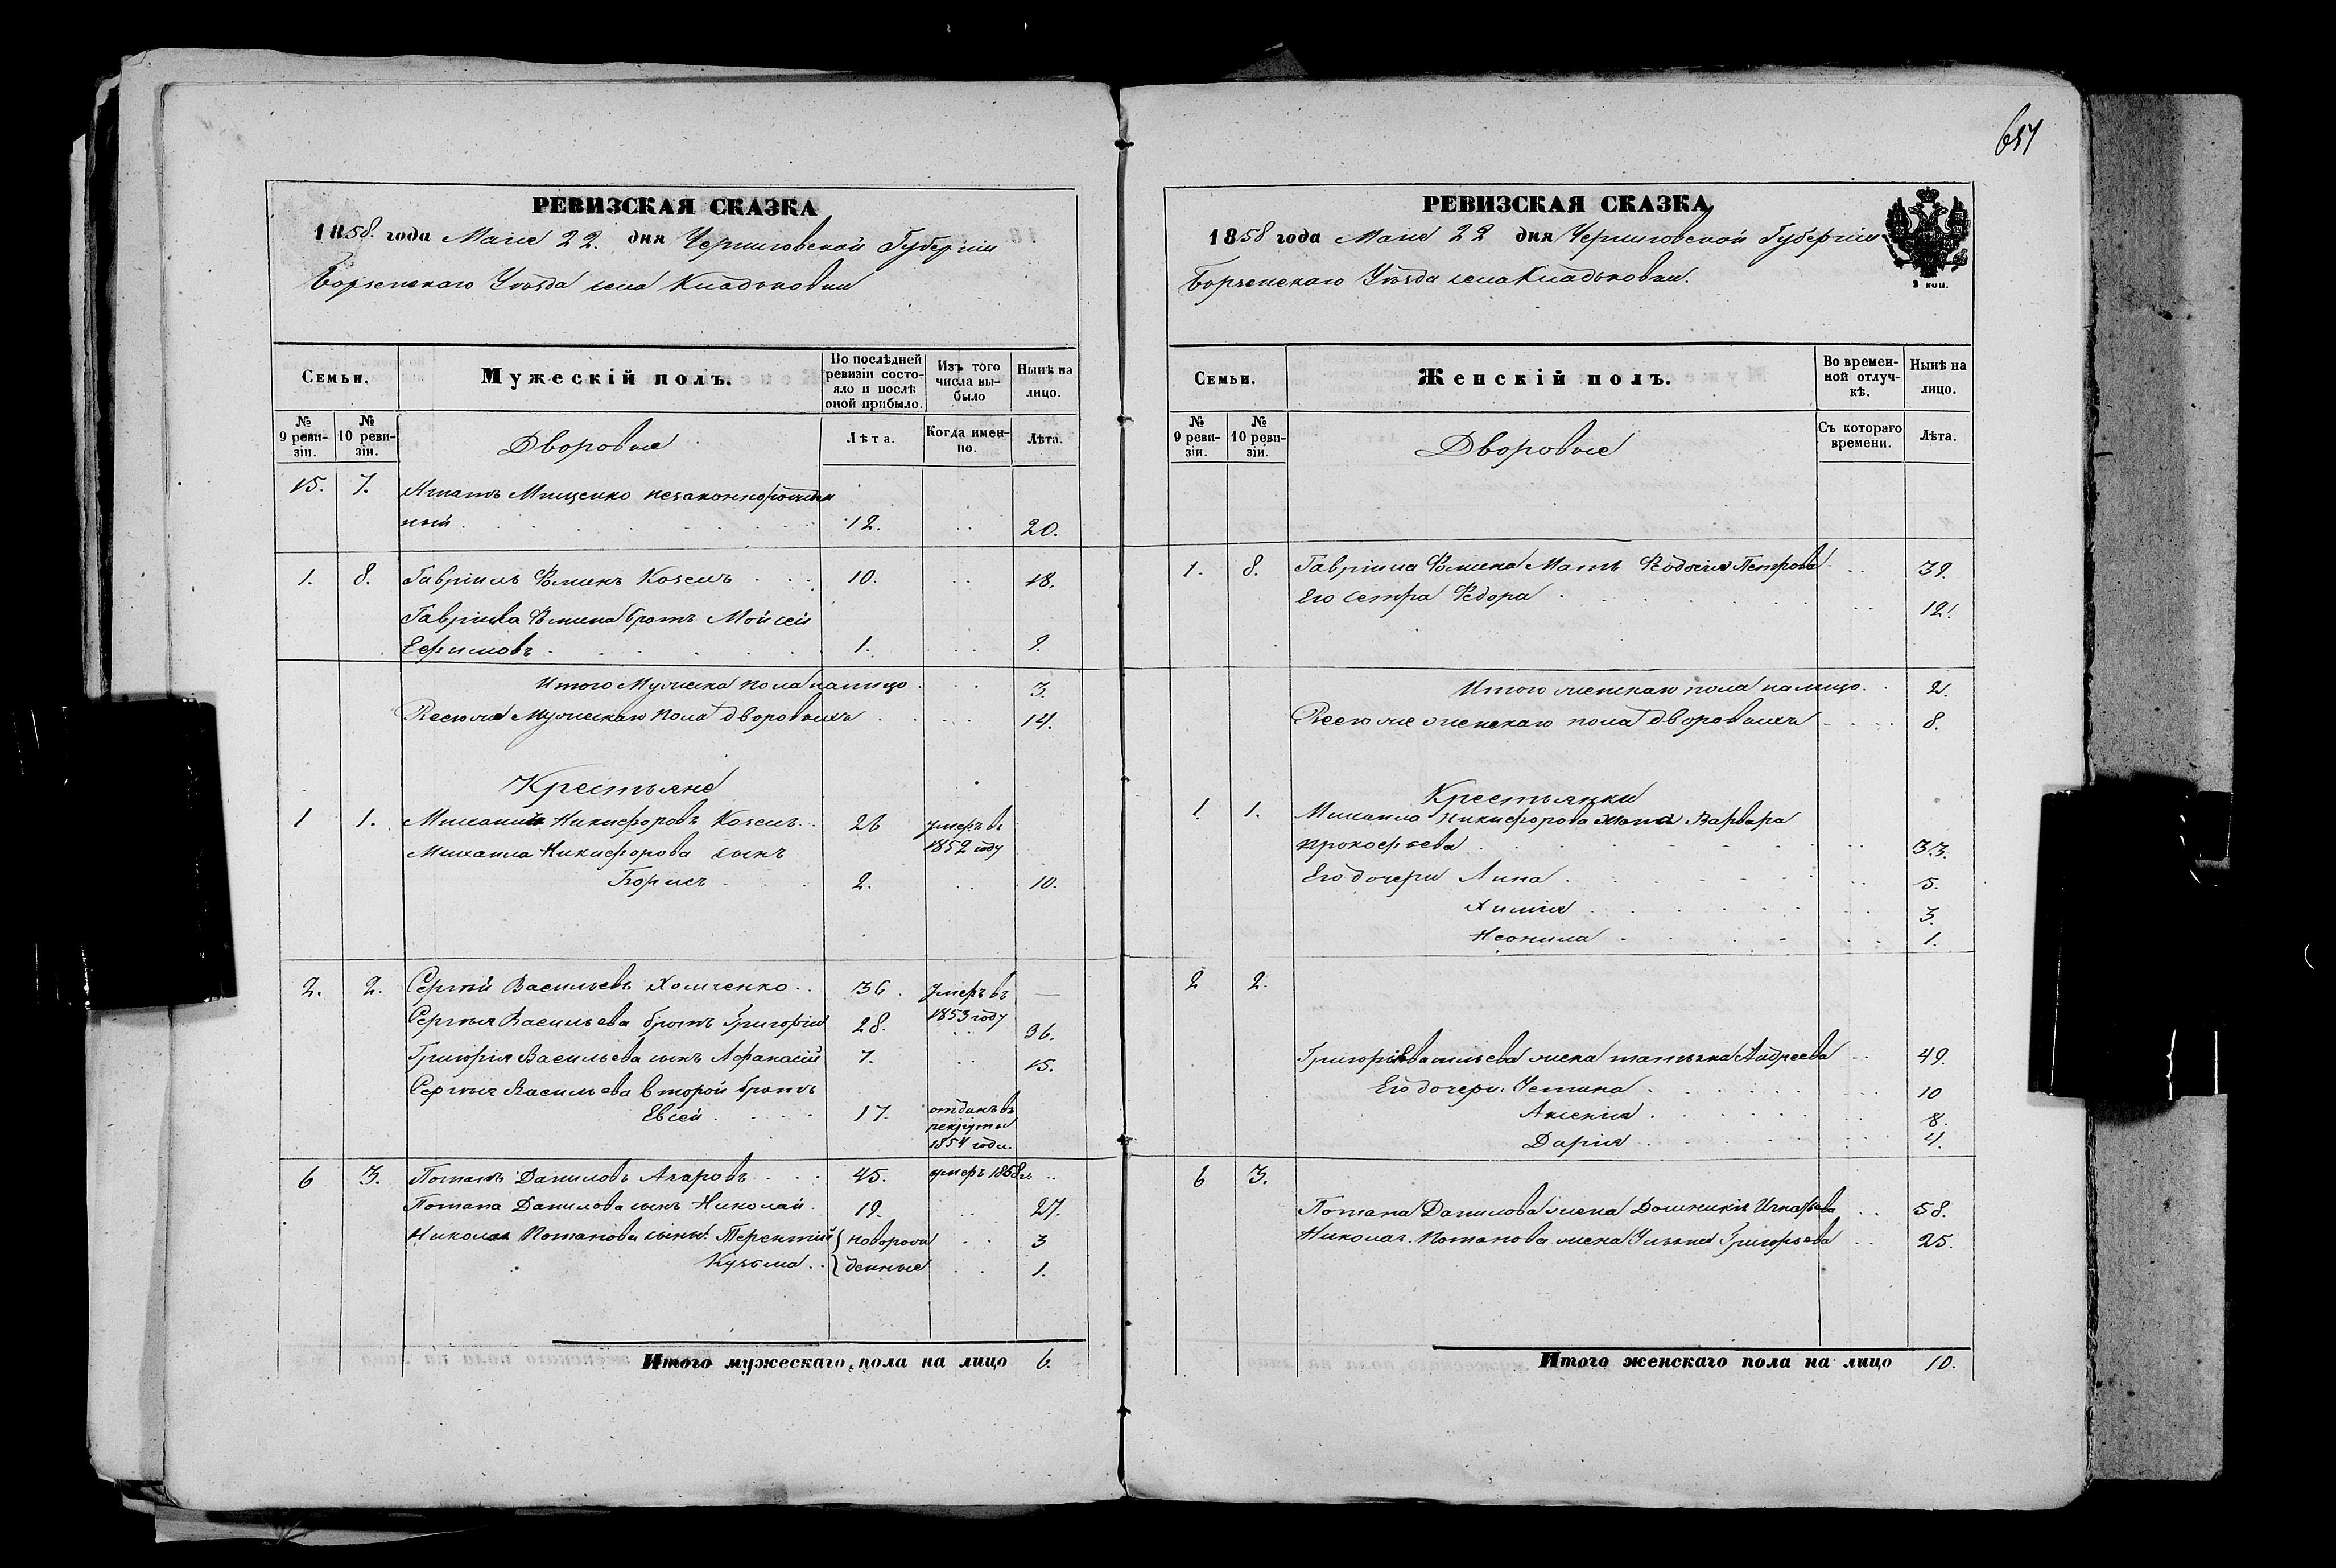 657
РЕВИЗСКАЯ СКАЗКА
1858. года Маія 22. дня Черниговской Губерніи
Борзенскаго Уѣзда села Кладьковки
Семьи.
Мужескій полъ.
По послѣдней ревизіи состояло и послѣ оной прибыло.
Изъ того числа выбыло
Нынѣ на лицо.
№ 9 ревизіи.
№ 10 ревизіи.
Дворовые
Лѣта.
Когда именно.
Лѣта.
15. 7. Мищенко незаконнорожден
ный 12. 20.
1. 8. Гавріилъ Фоминъ Козелъ 10. 18.
Гавріила Фомина братъ Мойсей
Ефимовъ 1. 9.
Итого Мужеска пола налицо 3.
Всего же Мужескаго пола дворовыхъ 14.
Крестьяне
1 1. Михаилъ Никифоровъ Козелъ 26 умеръ въ
1852 году
Михаила Никифорова сынъ
Борисъ 2. 10.
2. 2. Сергѣй Васильевъ Хомченко 36. Умеръ въ —
1853 году
Сергѣя Васильева братъ Григорій 28. 36.
Григорія Васильева сынъ Афанасій 7. 15.
Сергѣя Васильева второй братъ
Евсей 17. отданъ въ
рекруты
1854 года.
6 3. Потапъ Даниловъ Азаровъ 45. умеръ 1858 г.
Потапа Данилова сынъ Николай 19. 27.
Николая Потапова сыны: Терентій новорож 3
Кузьма денные 1.
Итого мужескаго пола на лицо 6.
РЕВИЗСКАЯ СКАЗКА
1858 года Маія 22 дня Черниговской Губерніи
Борзенскаго Уѣзда села Кладьковки.
3 коп.
Семьи.
Женскій полъ.
Во временной отлучкѣ.
Нынѣ на лицо.
№ 9 ревизіи.
№ 10 ревизіи.
Дворовые
Съ котораго времени.
Лѣта.
1. 8. Гавріила Фомина Мать Федосія Петрова 39.
Его сестра Федора 12.
Итого женскаго пола налицо 2.
Всего же женскаго пола дворовыхъ 8.
Крестьянки
1. 1. Михаила Никифорова жена Варвара
Прокофьева 33.
Его дочери Анна 5.
Химія 3.
Неонила 1.
2 2.
Григорія Васильева жена Татьяна Андреева 49.
Его дочери. Устина 10
Аксенія 8.
Дарія 4.
6 3.
Потапа Данилова жена Домникія Игнатьева 58.
Николая Потапова жена Ульяна Григорьева 25.
Итого женскаго пола на лицо 10.